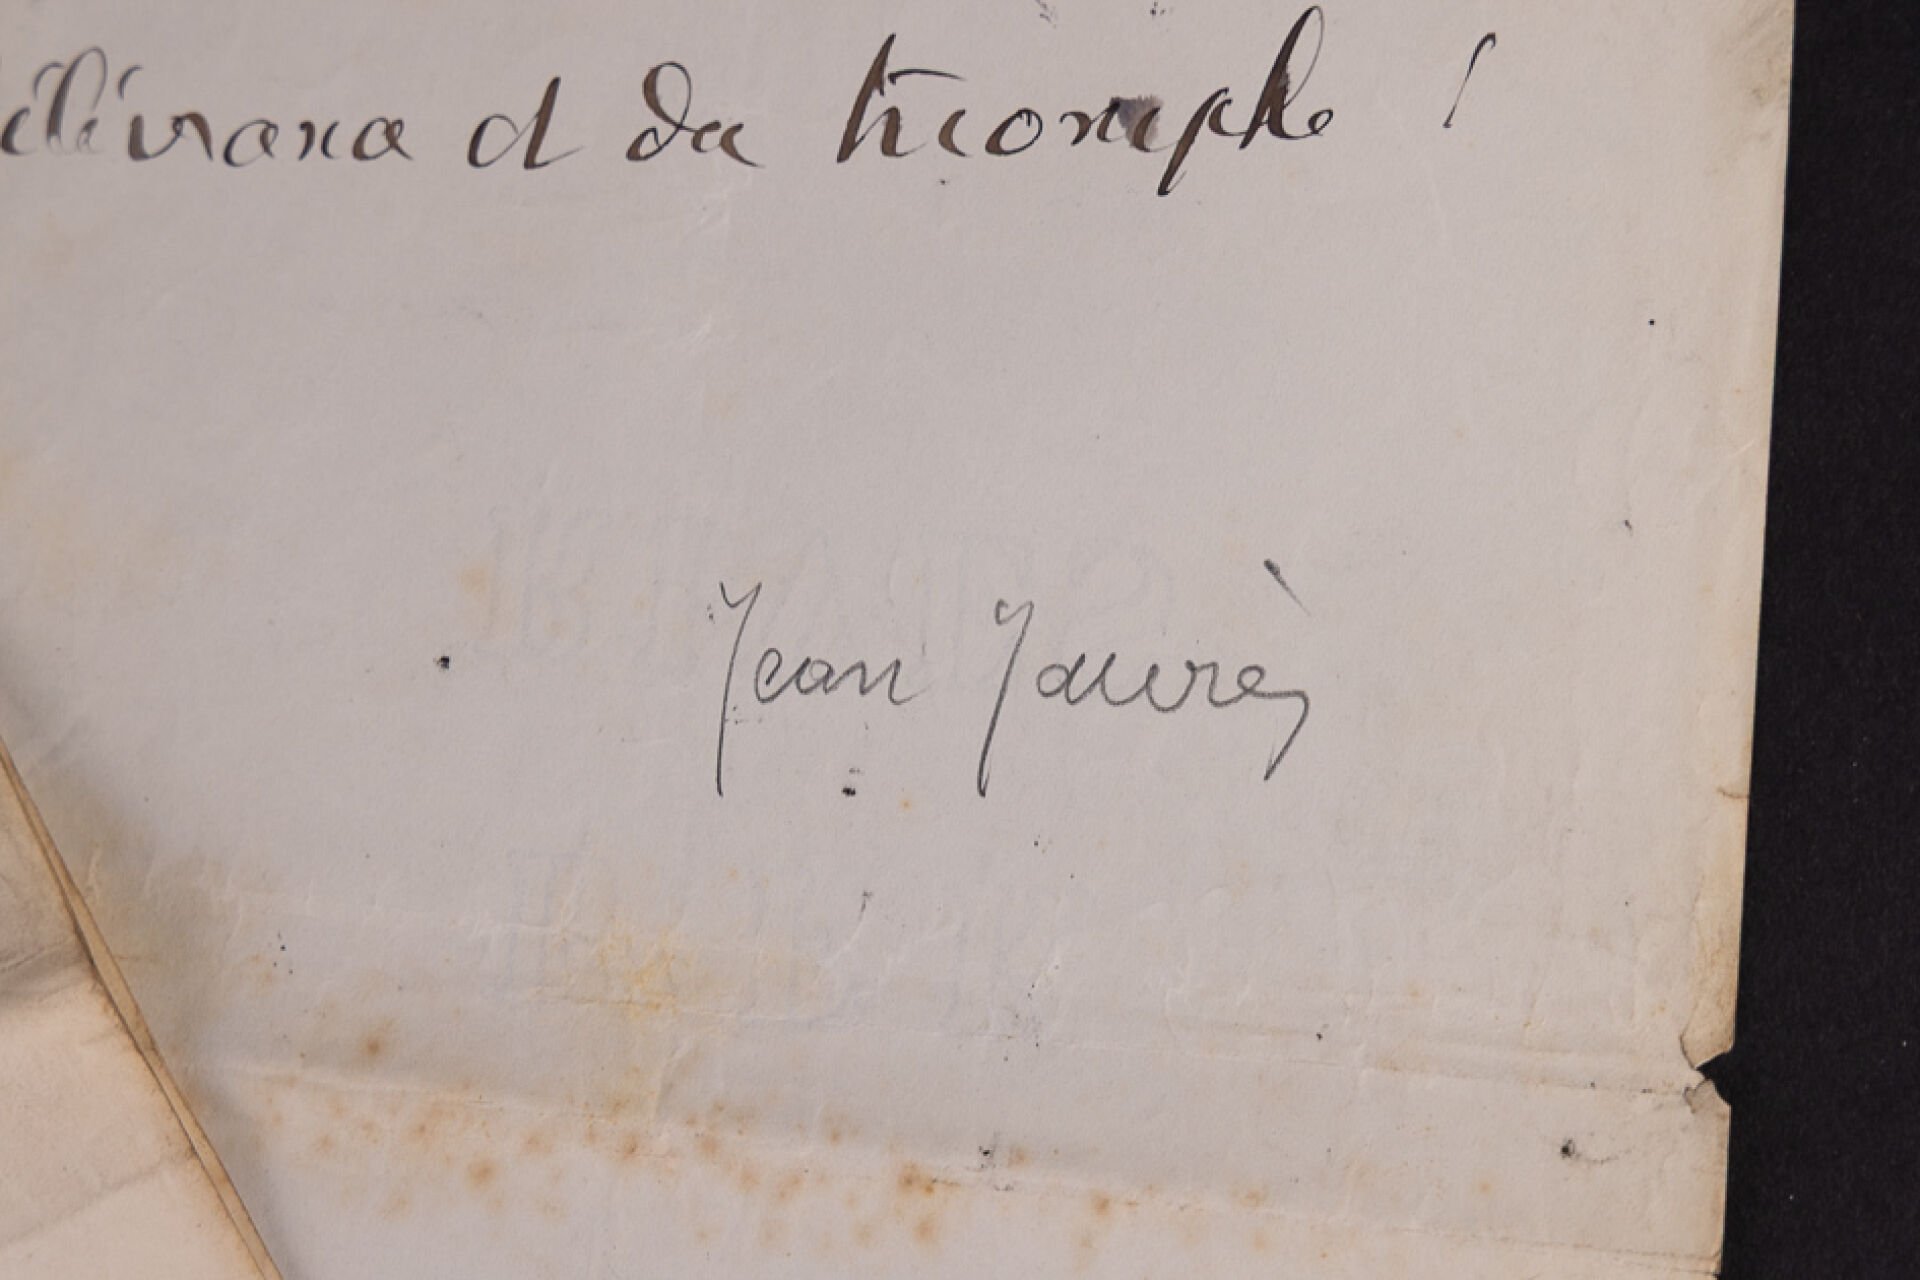 délivrance et du triomphe !
Jean Jaurès